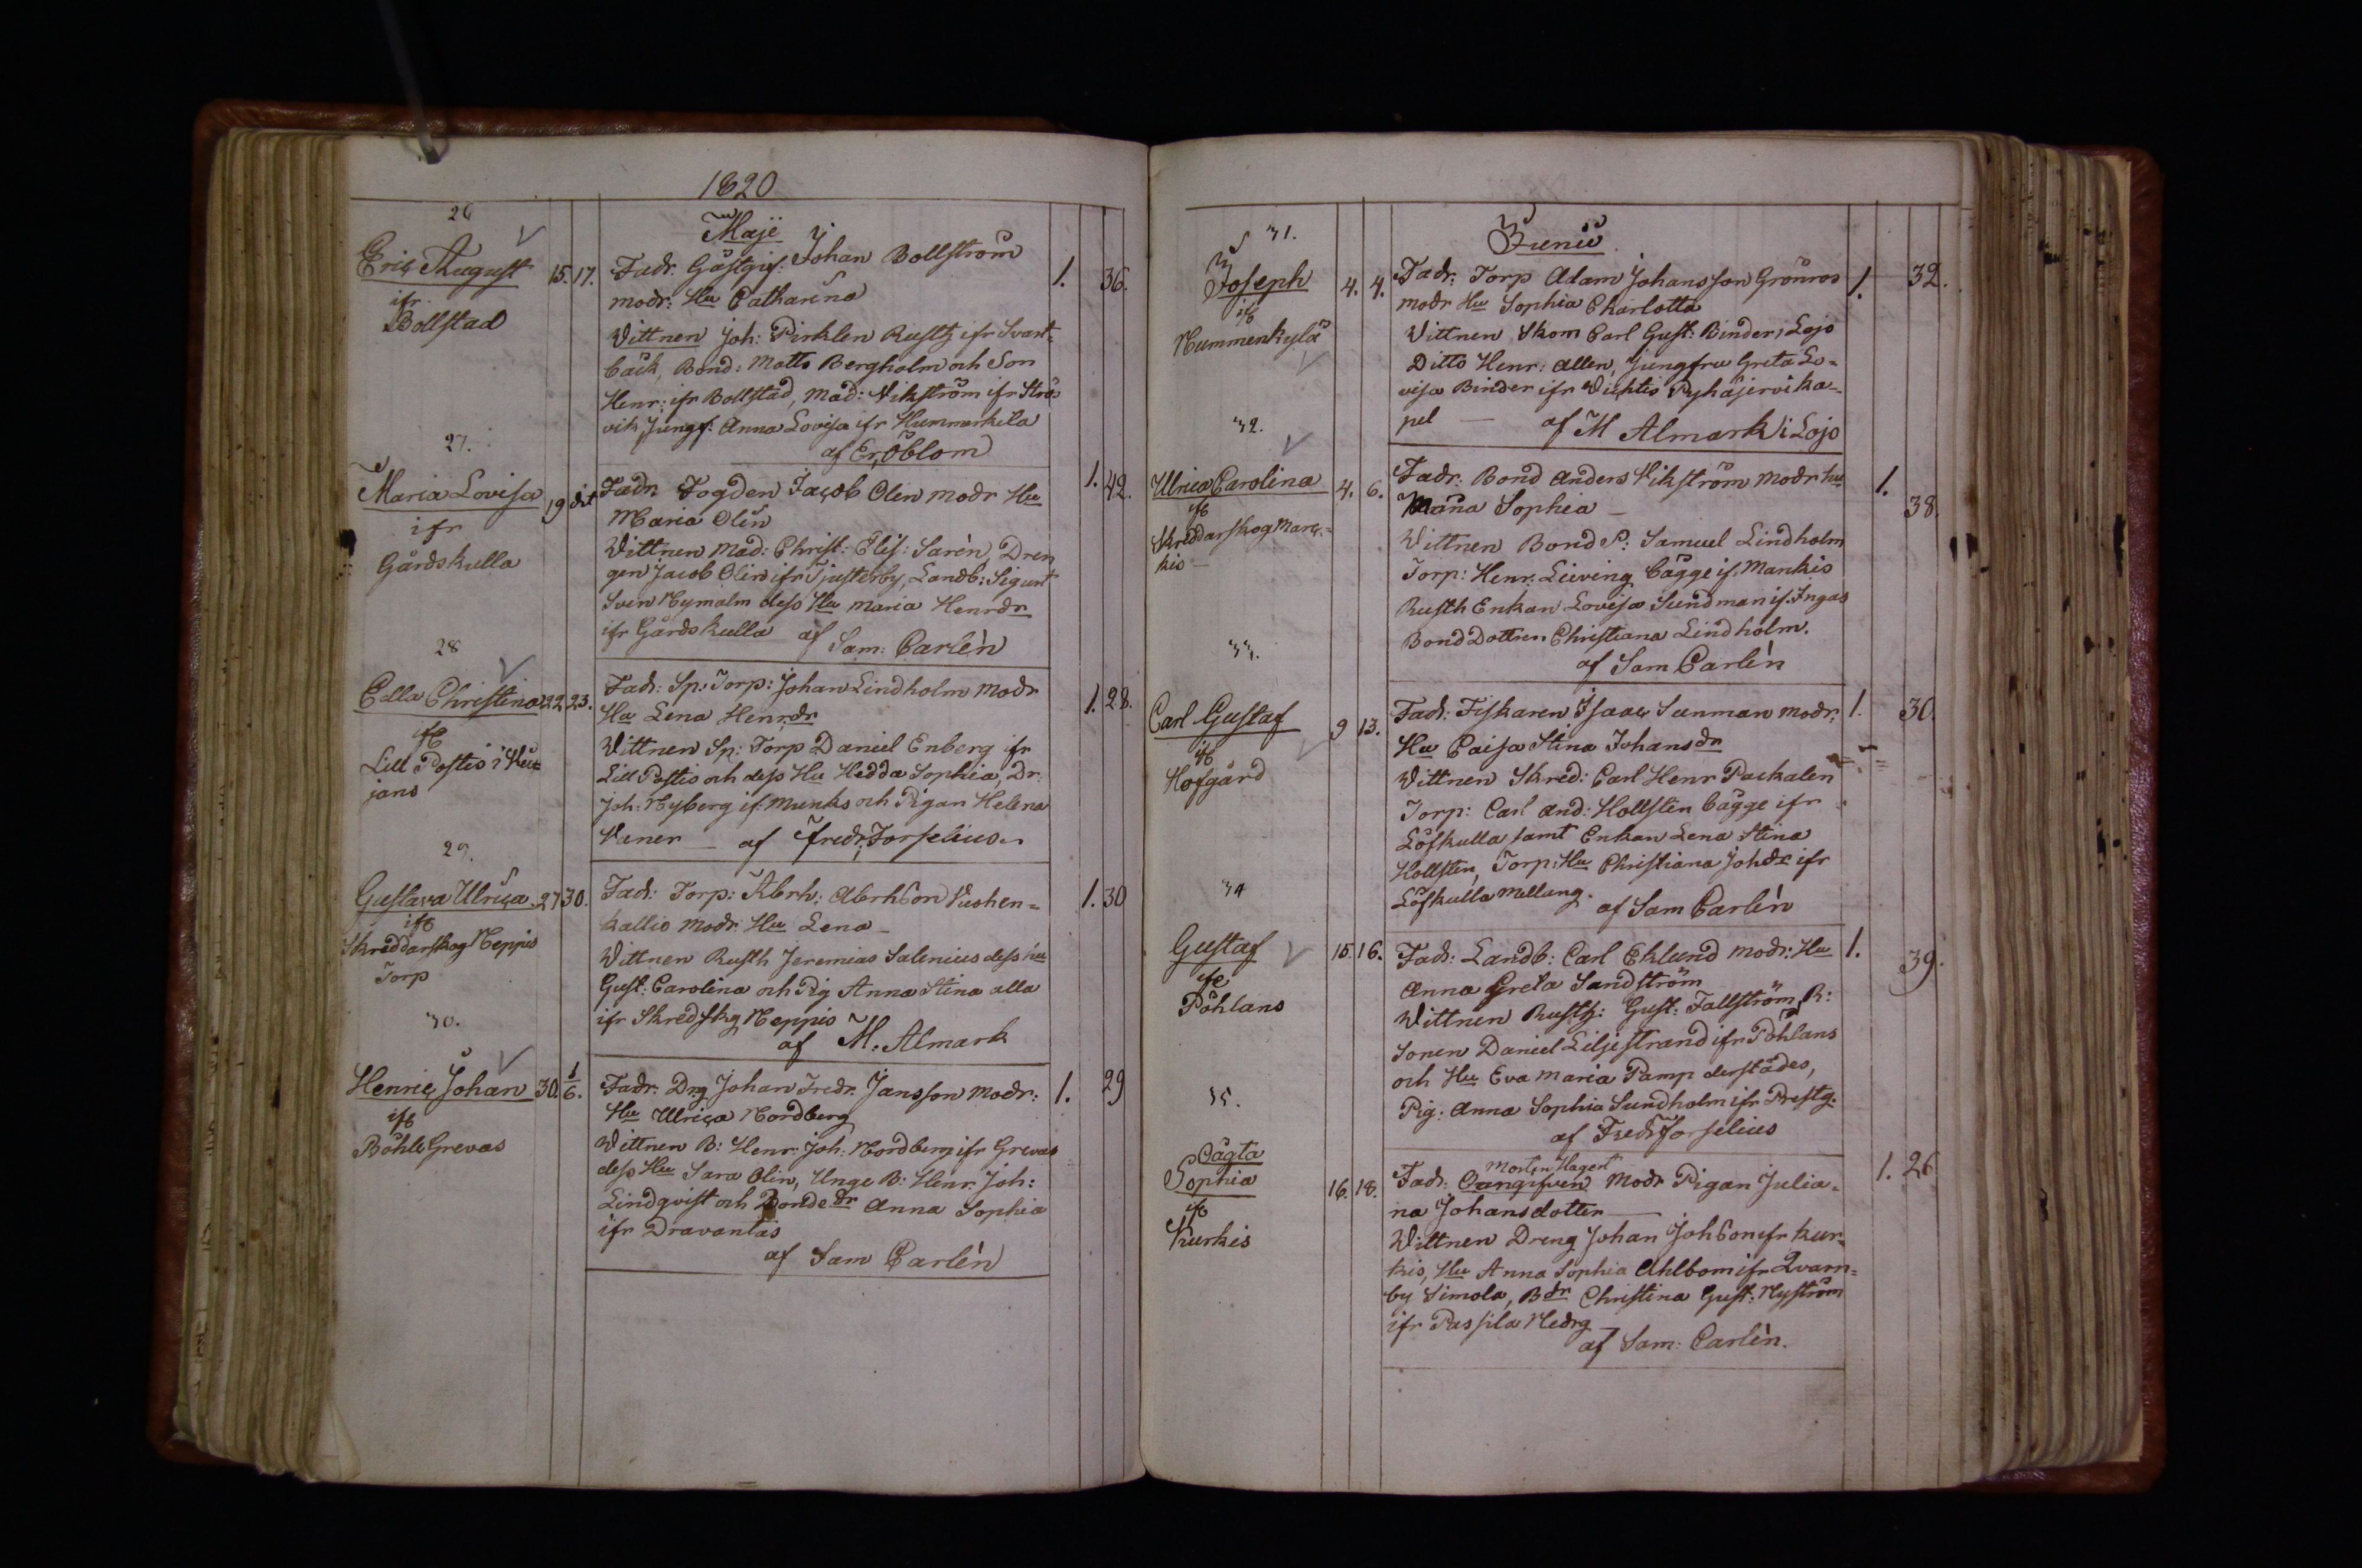 1820
Maji
26
Eric August
ifr
Bollstad
15. 17.
Fadr. Gästgif: Johan Bollström
modr: Hu Catharina
Vittnen Joh: Pirklen Rusth ifr Svart-
bäck, Bond: Matts Bergholm och Son
Henr: ifr Bollstad, Mad: Vikström ifr Strö
vik, Jungf: Anna Lovisa ifr Hummerkila
af Er. Öblom
1. 36.
27.
Maria Lovisa
ifr
Gårdskulla
19 dit
Fadr Fogden Jacob Olin modr Hu
Maria Olin
Vittnen Mad: Christ: Elis: Sarèn, Dren
gen Jacob Olin ifr Tjusterby, Landb: Sigurt
Sven Nymalm dess Hu Maria Henrdr
ifr Gårdskulla af Sam: Carlèn
1. 42.
28
Edla Christina
ifr
Lill Postis i
jans
22 23.
Fadr: Sp: Torp: Johan Lindholm Modr
Hu Lena Henrdr
Vittnen Sp: Torp Daniel Enberg ifr
Lill Postis och dess Hu Hedda Sophia, Dr:
Joh: Nyberg if. Munks och Pigan Helena
Vaner — af Fredr: Forselius
1. 28.
29.
Gustava Ulrica
ifr
Skreddarskog Neppis
Torp
27 30.
Fadr: Torp: Abrh: AbrhSon Vuohen-
kallio Modr. Hu Lena —
Vittnen Rusth Jeremias Salenius dess hu
Gust: Carolina och Pig Anna Stina alla
ifr Skredskg Neppis
af M. Almark
1. 30
30.
Henric Johan
ifr
Böhle Grevas
30. 1/6.
Fadr. Drg Johan Fredr. Jansson Modr:
Hu Ulrica Nordberg
Vittnen B: Henr: Joh: Nordberg ifr Grevas
dess Hu Sara Olin, Unge B: Henr. Joh:
Lindqvist och Bonde dr Anna Sophia
ifr Dravantas
af Sam Carlèn
1. 29
Junii
31.
Joseph
ifr
Nummenkylä
4. 4.
Fadr: Torp Adam Johansson Grönros
modr Hu Sophia Charlotta
Vittnen Skom Carl Gust: Binder i Lojo
Ditto Henr: Allen, Jungfru Greta Lo-
visa Binder ifr Vichtis Pyhäjervi ka-
pel — af M Almark i Lojo
1. 32.
32.
Ulrica Carolina
ifr
Skreddarskog Marc-
kis —
4. 6.
Fadr: Bond Anders Vikström Modr hu
Maria Sophia —
Vittnen Bond S: Samuel Lindholm
Torp: Henr. Lieving bägge if. Mankis
Rusth Enkan Lovisa Sundman if. Ingas
Bond Dottren Christiana Lindholm.
af Sam Carlèn
1. 38.
33.
Carl Gustaf
ifr
Hofgård
9 13.
Fadr: Fiskaren Isaac Sunman modr:
Hu Caisa Stina Johansdr
Vittnen Skred: Carl Henr Packalen
Torp: Carl And: Hollsten bägge ifr
Löfkulla samt Enkan Lena Stina
Hollsten, Torp: Hu Christiana Johdr ifr
Löfkulla Mellang.
af Sam Carlèn
1. 30.
34
Gustaf
ifr
Pöhlans
15. 16.
Fadr: Landb: Carl Eklund Modr: Hu
Anna Greta Sandström
Vittnen Rusth: Gust: Fallström, R:
Sonen Daniel Liljestrand ifr Pöhlans
och Hu Eva Maria Pamp derstädes,
Pig: Anna Sophia Sundholm ifr Prestg.
af Fredr Forselius
1. 39.
35.
Cagta
Sophia
ifr
Kurkis
16. 18.
Morten Hagert
Fadr: Oangifven Modr Pigan Julia-
na Johansdotter —
Vittnen Dreng Johan JohSon ifr Kur-
kis, Hu Anna Sophia Ahlbom ifr Qvarn-
by Simola, Bdr Christina Gust: Nyström
ifr Passila Nedrg
af Sam: Carlèn.
1. 26